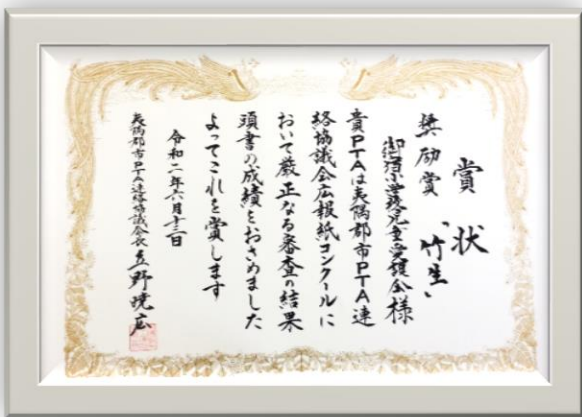 賞状
奨励賞 「竹生」
御宿小学校児童愛護会様
貴PTAは夷隅郡市PTA連
絡協議会広報紙コンクールに
おいて厳正なる審査の結果
頭書の成績をおさめました
よってこれを賞します
令和二年六月十三日
夷隅郡市PTA連絡協議会長 立野暁広